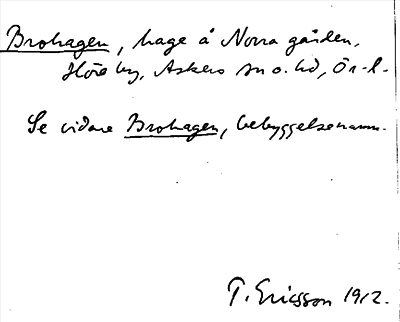 Brohagen, hage å Norra gården,
by, Askers sn o. hd, Ör. l.
Se vidare Brohagen, bebyggelsenamn.
T. Ericsson 1912.